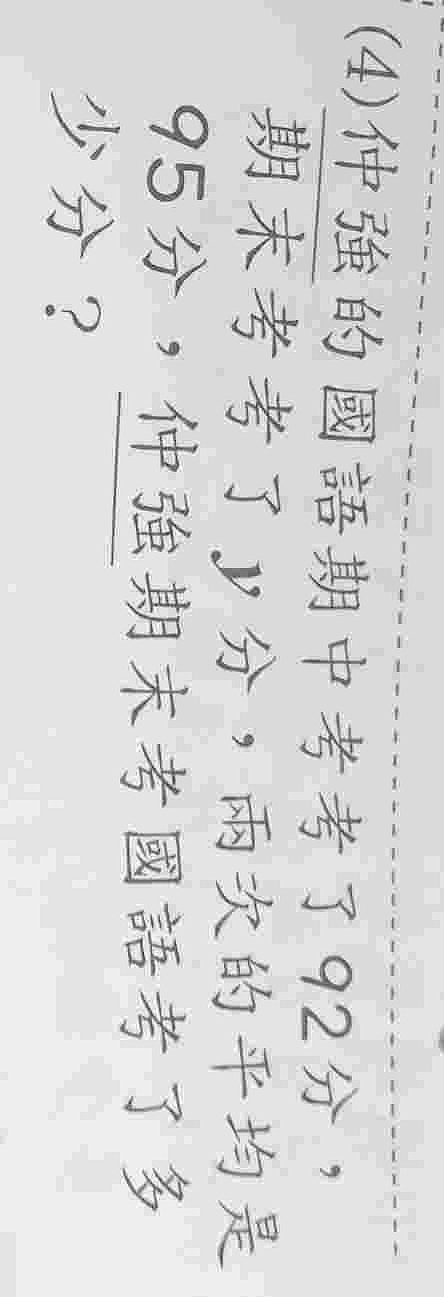 (4)仲強的國語期中考考了92分，
期末考考了y分，兩次的平均是
95分，仲強期末考國語考了多
少分？